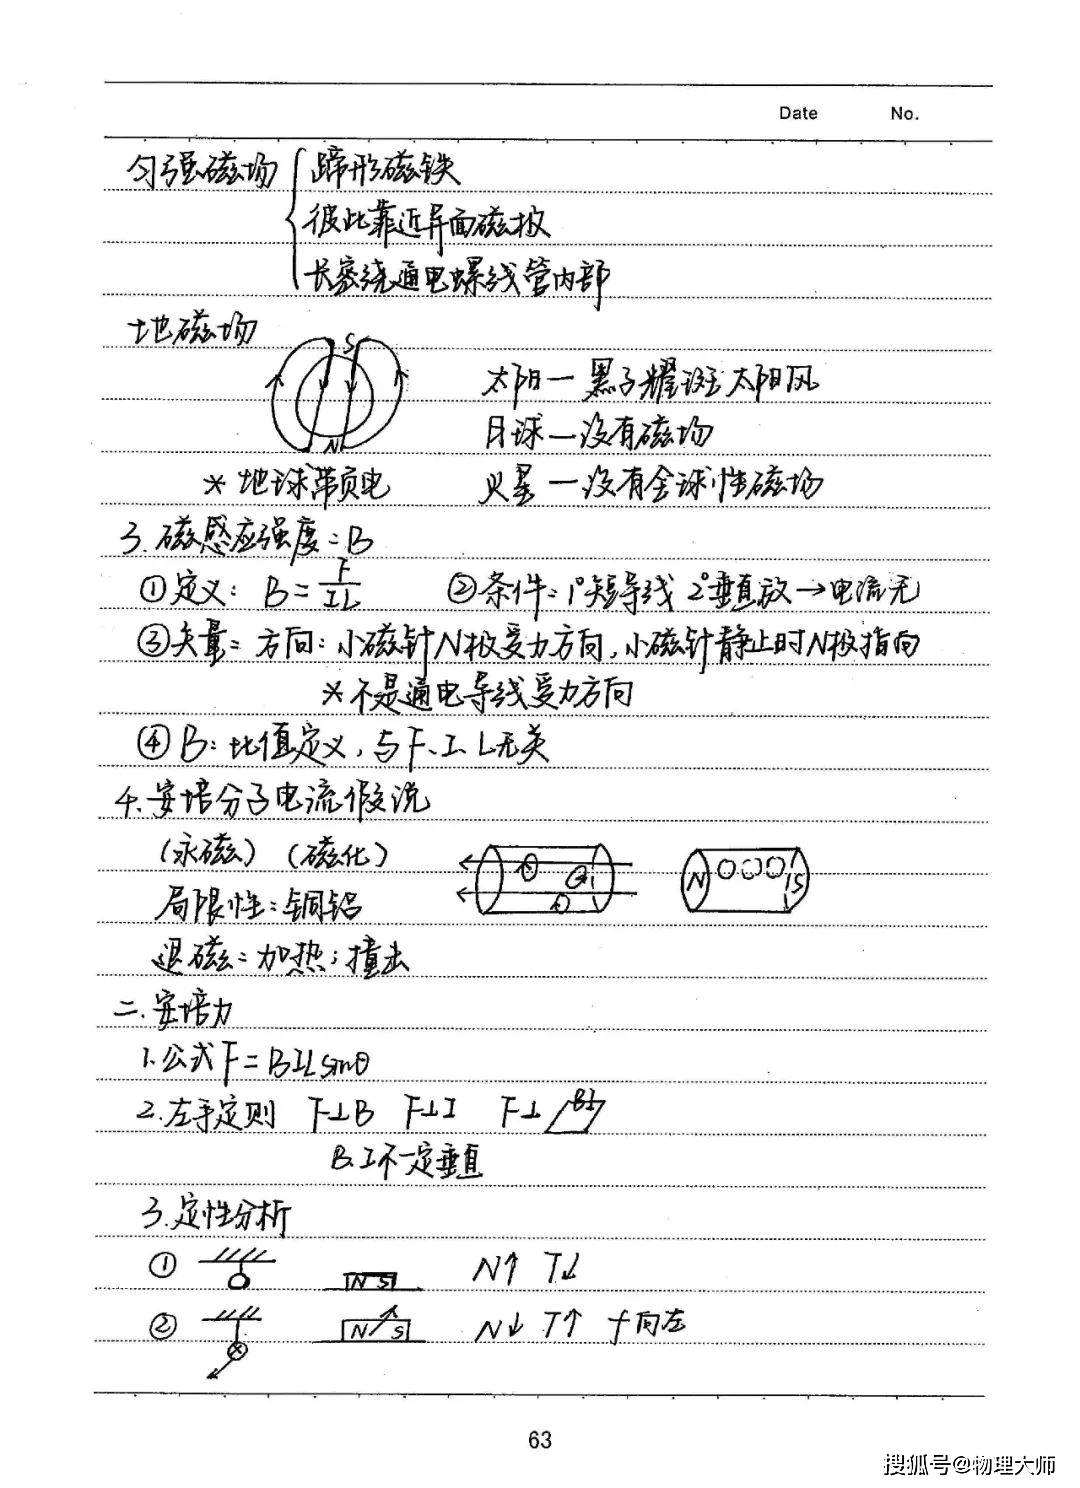 Date No.
匀强磁场 蹄形磁铁
彼此靠近异面磁极
长密绕通电螺线管内部
地磁场
S
N
太阳一黑子耀斑太阳风
月球一没有磁场
*地球带负电 火星一没有全球性磁场
3.磁感应强度:B
①定义: B=F/IL ②条件:1°短导线 2°垂直放→电流元
③矢量: 方向:小磁针N极受力方向,小磁针静止时N极指向
*不是通电导线受力方向
④B:比值定义,与F、I、L无关
4.安培分子电流假说
(永磁)(磁化)
N S
局限性:铜铝
退磁:加热;撞击
二.安培力
1.公式F=BILsinθ
2.左手定则 F⊥B F⊥I F⊥ BI
B.I不一定垂直
3.定性分析
① N S N↑ T↓
② N S N↓ T↑ f向左
63
搜狐号@物理大师